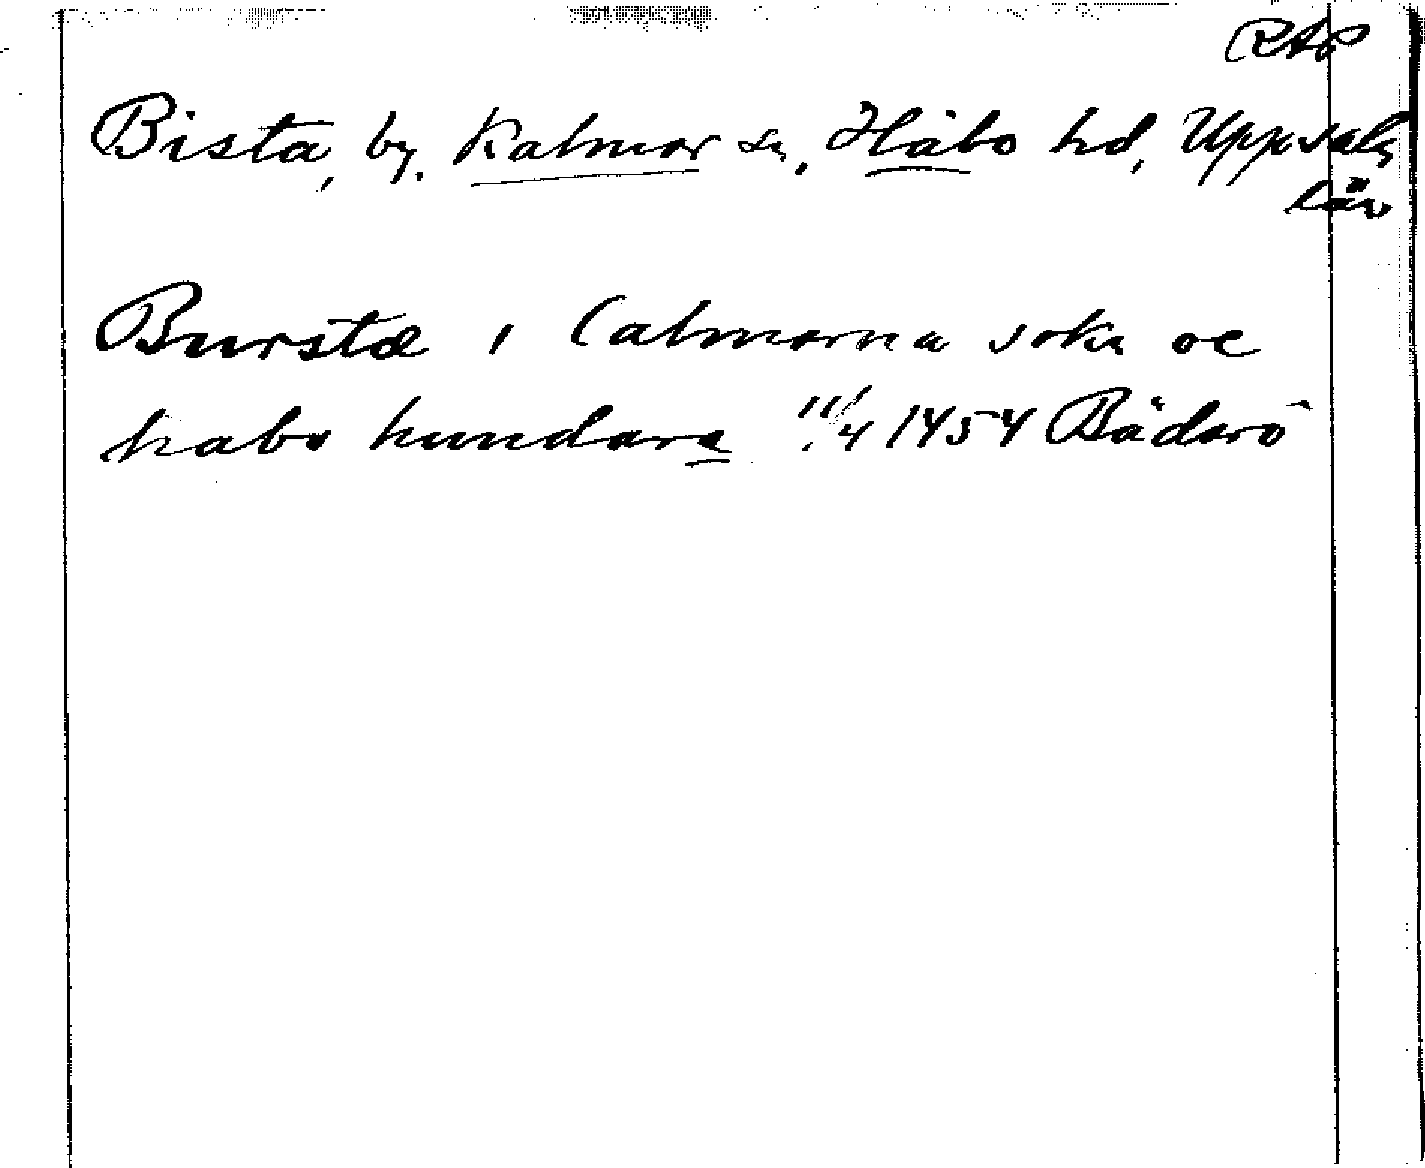 RAP
Bista, by. Kalmar sn, Håbo hd, Uppsala
län
Burstæ i Calmarna sokn oc
habo hundare 11/4 1454 Bäderö